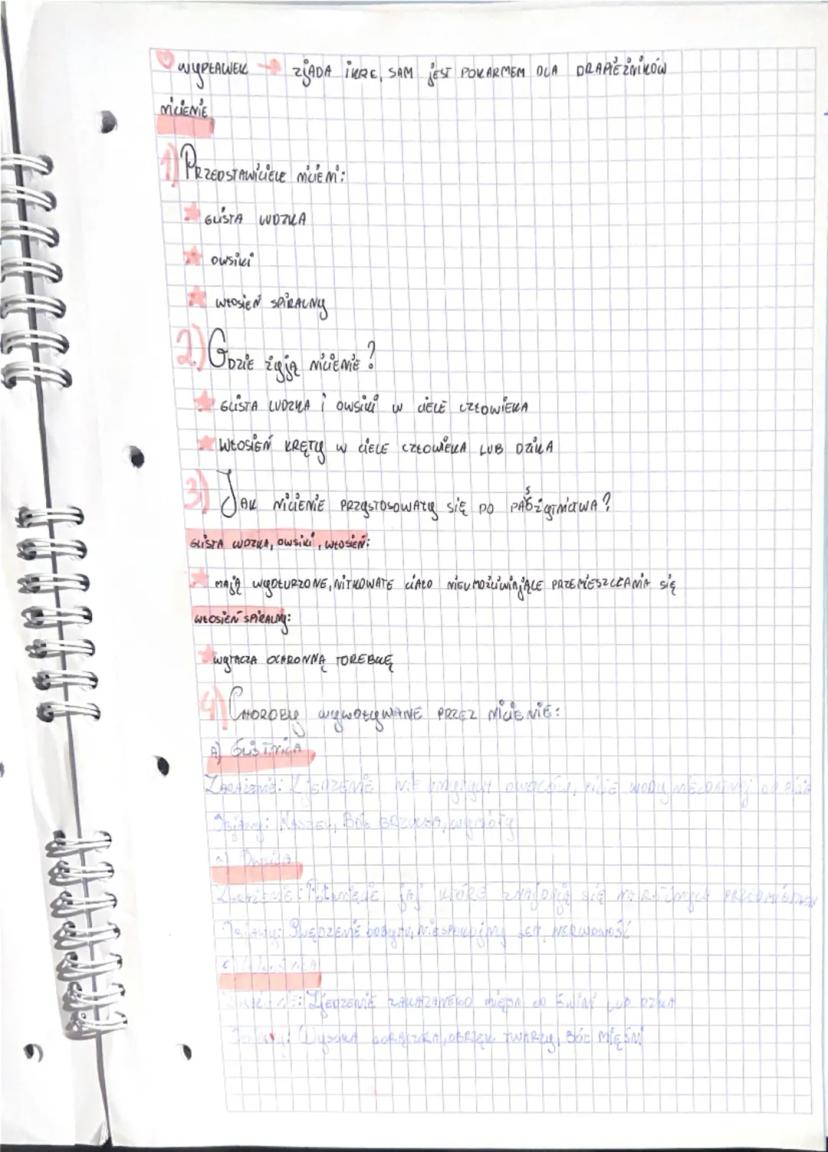 WYPŁAWEK → ZJADA IKRĘ, SAM JEST POKARMEM DLA DRAPIEŻNIKÓW
NICIENIE
1) PRZEDSTAWICIELE NICIENI:
GLISTA LUDZKA
OWSIKI
WŁOSIEŃ SPIRALNY
2) GDZIE ŻYJĄ NICIENIE?
GLISTA LUDZKA I OWSIKI W CIELE CZŁOWIEKA
WŁOSIEŃ KRĘTY W CIELE CZŁOWIEKA LUB DZIKA
3) JAK NICIENIE PRZYSTOSOWAŁY SIĘ DO PASOŻYTNICTWA?
GLISTA LUDZKA, OWSIKI, WŁOSIEŃ:
MAJĄ WYDŁURZONE, NITKOWATE CIAŁO NIEUMOŻLIWIAJĄCE PRZEMIESZCZANIA SIĘ
WŁOSIEŃ SPIRALNY:
WYTACZA OCHRONNĄ TOREBKĘ
4) CHOROBY WYWOŁYWANE PRZEZ NICIENIE:
A) GLISTNICA
ZARAŻENIE: ZJEDZENIE NIE UMYTYCH OWOCÓW, PICIE WODY
OBJAWY: KASZEL, BÓL BRZUCHA, WYMIOTY
ZARAŻENIE: POŁKNIĘCIE JAJ KTÓRE ZNAJDUJĄ SIĘ NA RÓŻNYCH
OBJAWY: SWĘDZENIE ODBYTU, NIESPOKOJNY SEN, NERWOWOŚĆ
ZARAŻENIE: ZJEDZENIE ZAKAŻANEGO MIĘSA OD ŚWINI LUB DZIKA
OBJAWY: WYSOKA GORĄCZKA, OBRZĘK TWARZY, BÓL MIĘŚNI